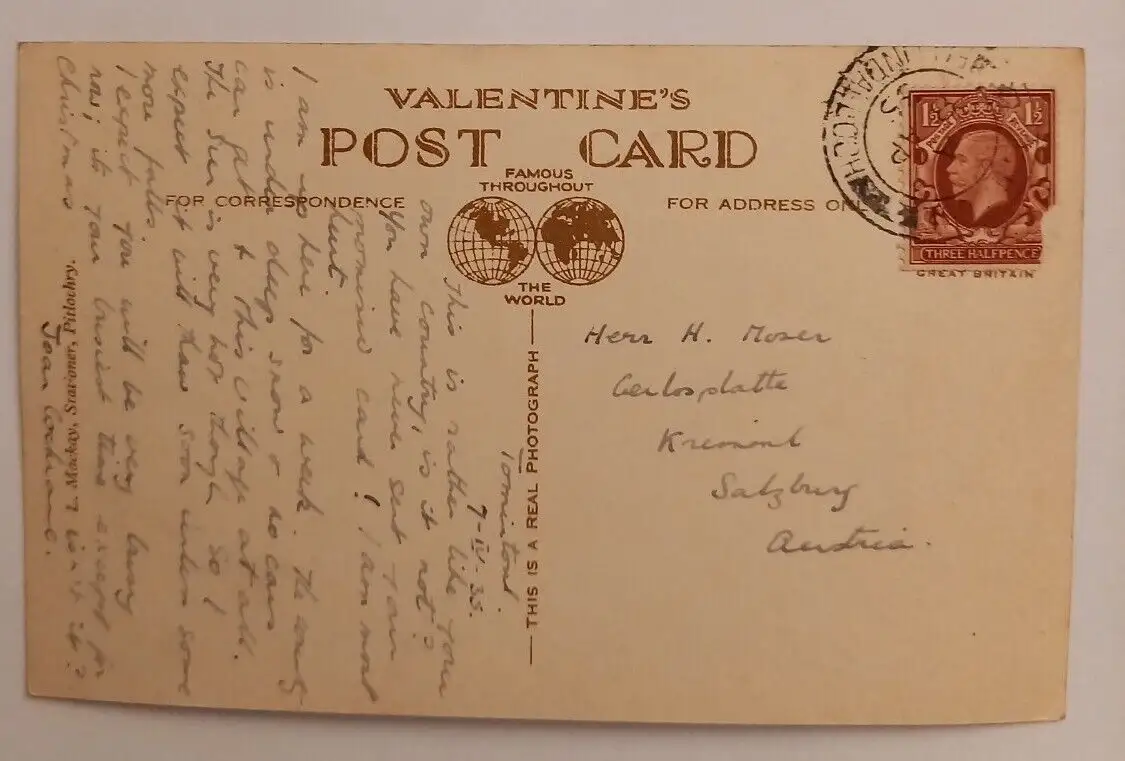 VALENTINE'S
POST CARD
FAMOUS
THROUGHOUT
THE
WORLD
FOR CORRESPONDENCE
FOR ADDRESS ON
THIS IS A REAL PHOTOGRAPH
1½ 1½
POSTAGE
THREE HALFPENCE
GREAT BRITAIN
Herr H. Moser
Gerlosplatte
Krimml
Salzburg
Austria.
Tomintoul.
7-IV-35.
This is rather like your
own country, is it not?
You have never sent your
promised card! I am most
hurt.
I am up here for a week. The county
is under deep snow & no cars
can get to this village at all.
The sun is very hot though so I
expect it will thaw soon unless some
more falls.
I expect you will be very
now; its your busiest time except for
Christmas isn't it?
Joan Cochrane.
Mackay, Stationer, Pitlochry.